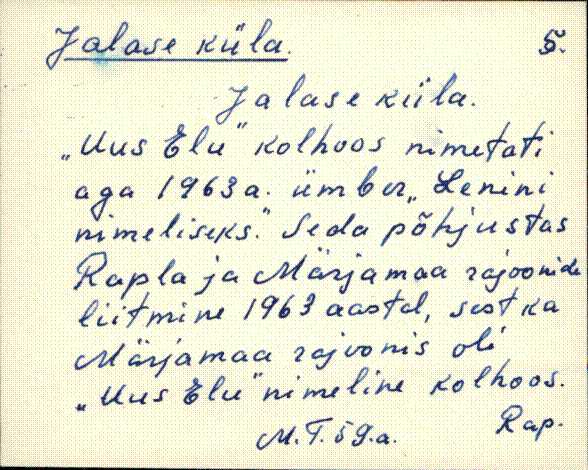 Jalase küla. 5.
Jalase küla.
„Uus Elu" kolhoos nimetati
aga 1963 a. ümber „Lenini
nimeliseks." Seda põhjustas
Rapla ja Märjamaa rajoonide
liitmine 1963 aastal, sest ka
Märjamaa rajoonis oli
„Uus Elu" nimeline kolhoos.
M.T. 59.a. Rap.